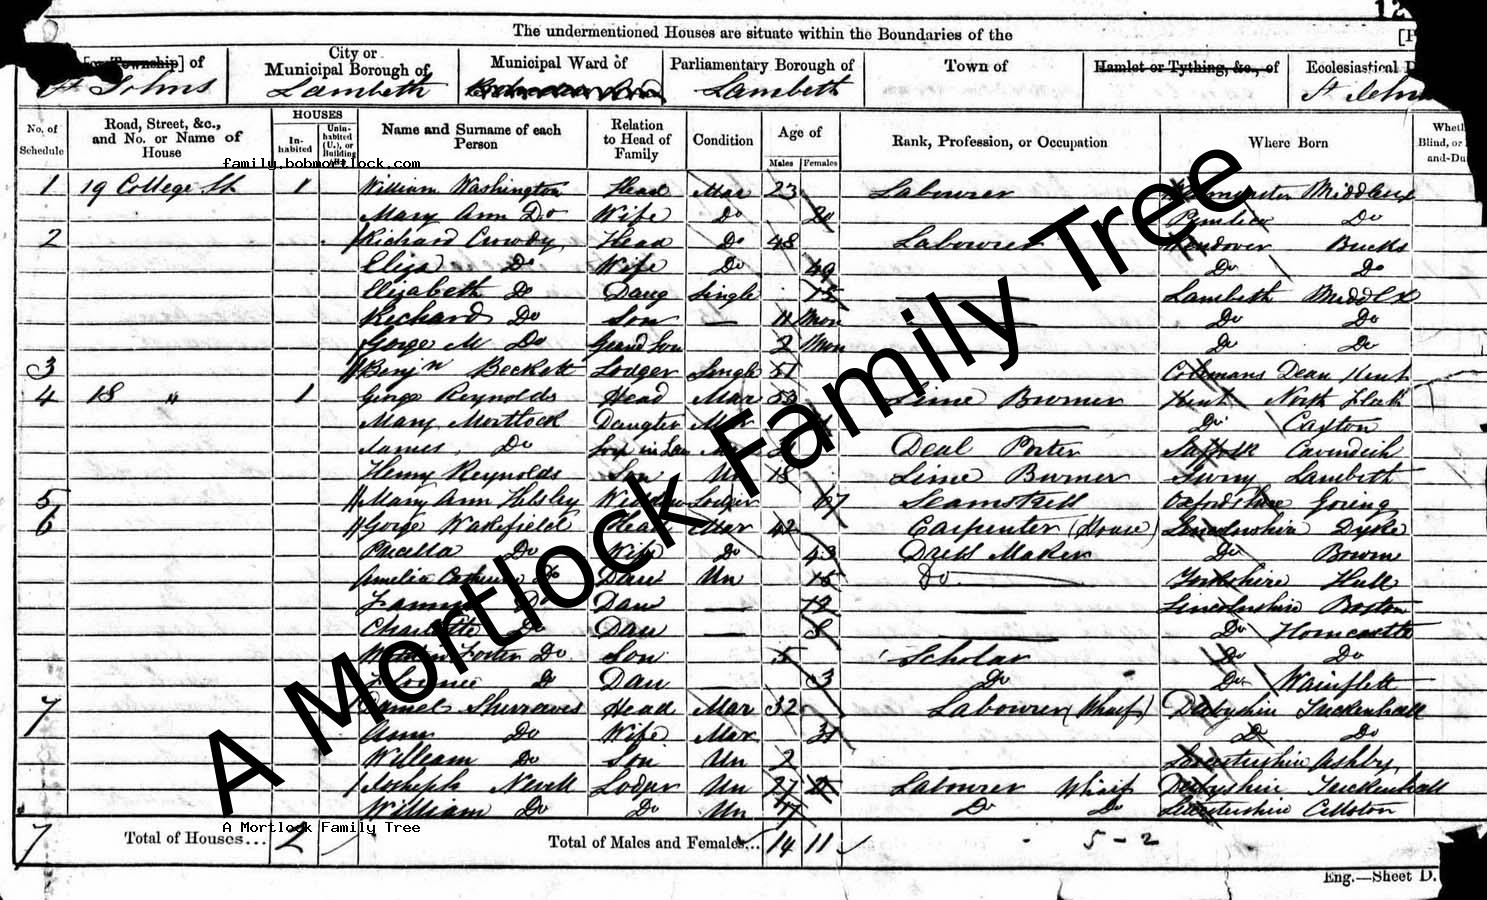 12
The undermentioned Houses are situate within the Boundaries of the
[or Township] of City or Municipal Borough of Municipal Ward of Parliamentary Borough of Town of Hamlet or Tything, &c., of Ecclesiastical D
St Johns Lambeth Lambeth St John
No. of Schedule Road, Street, &c., and No. or Name of House HOUSES Inhabited Uninhabited (U.), or Building (B.) Name and Surname of each Person Relation to Head of Family Condition Age of Males Females Rank, Profession, or Occupation Where Born Wheth Blind, or and-Du
family.bobmortlock.com
1 19 College St 1 William Washington Head Mar 23 Labourer Westminster Middlesex
Mary Ann Do Wife Do 20 Pimlico Do
2 Richard Crowdy Head Do 48 Labourer Wendover Bucks
Eliza Do Wife Do 49 Do Do
Elizabeth Do Daug Single 15 Lambeth Middlx
Richard Do Son 11 Mon Do Do
George M Do Grand Son 2 Mon Do Do
3 Benjn Beckett Lodger Single 51 Dean Kent
4 18 " 1 George Reynolds Head Mar 53 Lime Burner Kent North
Mary Mortlock Daugter Mar Do Caxton
James Do Son in Law Deal Porter Suffolk Cavendish
Henry Reynolds Son Un 18 Lime Burner Surry Lambeth
5 Mary Ann Lodger 67 Seamstress Oxfordshire Goring
6 George Wakefield Head Mar 42 Carpenter (House) Lincolnshire Dyke
Do Wife Do 43 Dress Maker Do Bourn
Amelia Catherine Do Dau Un 15 Do Yorkshire Hull
Fanny Do Dau 12 Lincolnshire Boston
Charlotte Do Dau 8 Do Horncastle
Foster Do Son 5 Scholar Do Do
Florence Do Dau 3 Do Do Wainflett
7 Head Mar 32 Labourer (Wharf) Derbyshire Ticknall
Ann Do Wife Mar 31 Do Do
William Do Son Un 2 Leicestershire Ashby
Joseph Newell Lodger Un 27 Labourer Wharf Derbyshire
William Do Do Un 17 Do Do Leicestershire
A Mortlock Family Tree
A Mortlock Family Tree
7 Total of Houses... 2 Total of Males and Females... 14 11 5 - 2
Eng.—Sheet D.